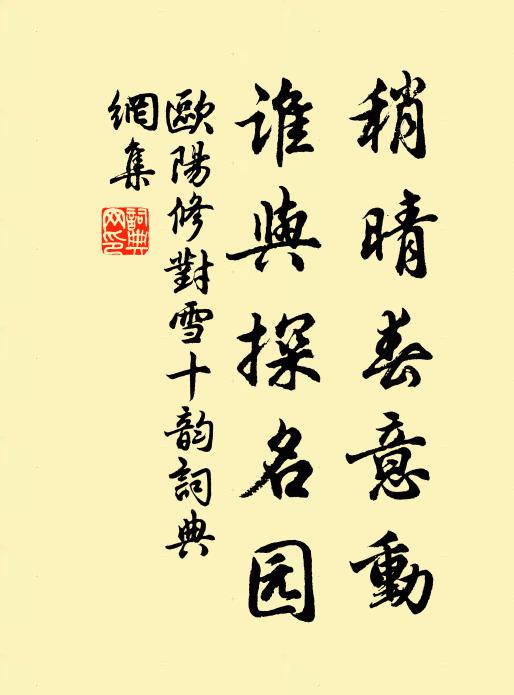 稍晴春意動
誰與探名园
歐陽修對雪十韵詞典
網集
詞典网印